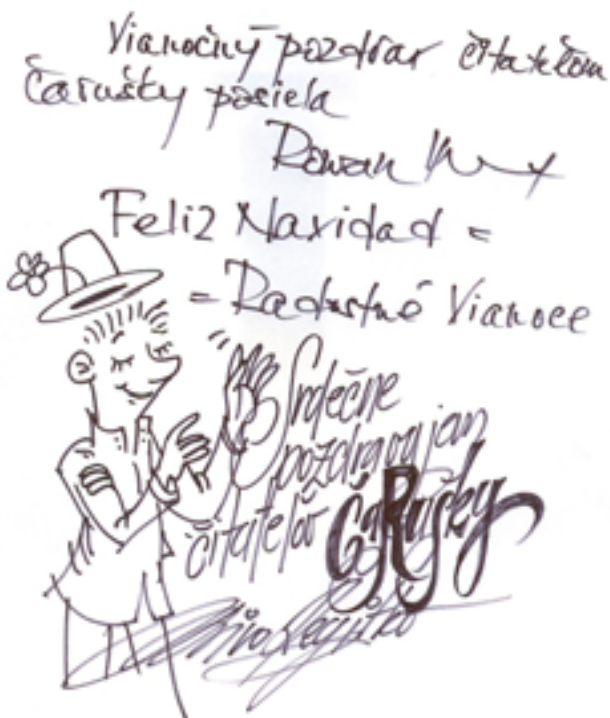 Vianočný pozdrav čitateľom
Čarušky posiela
Roman
Feliz Navidad =
= Radostné Vianoce
Srdečne
pozdravujem
čitateľov
Čarušky